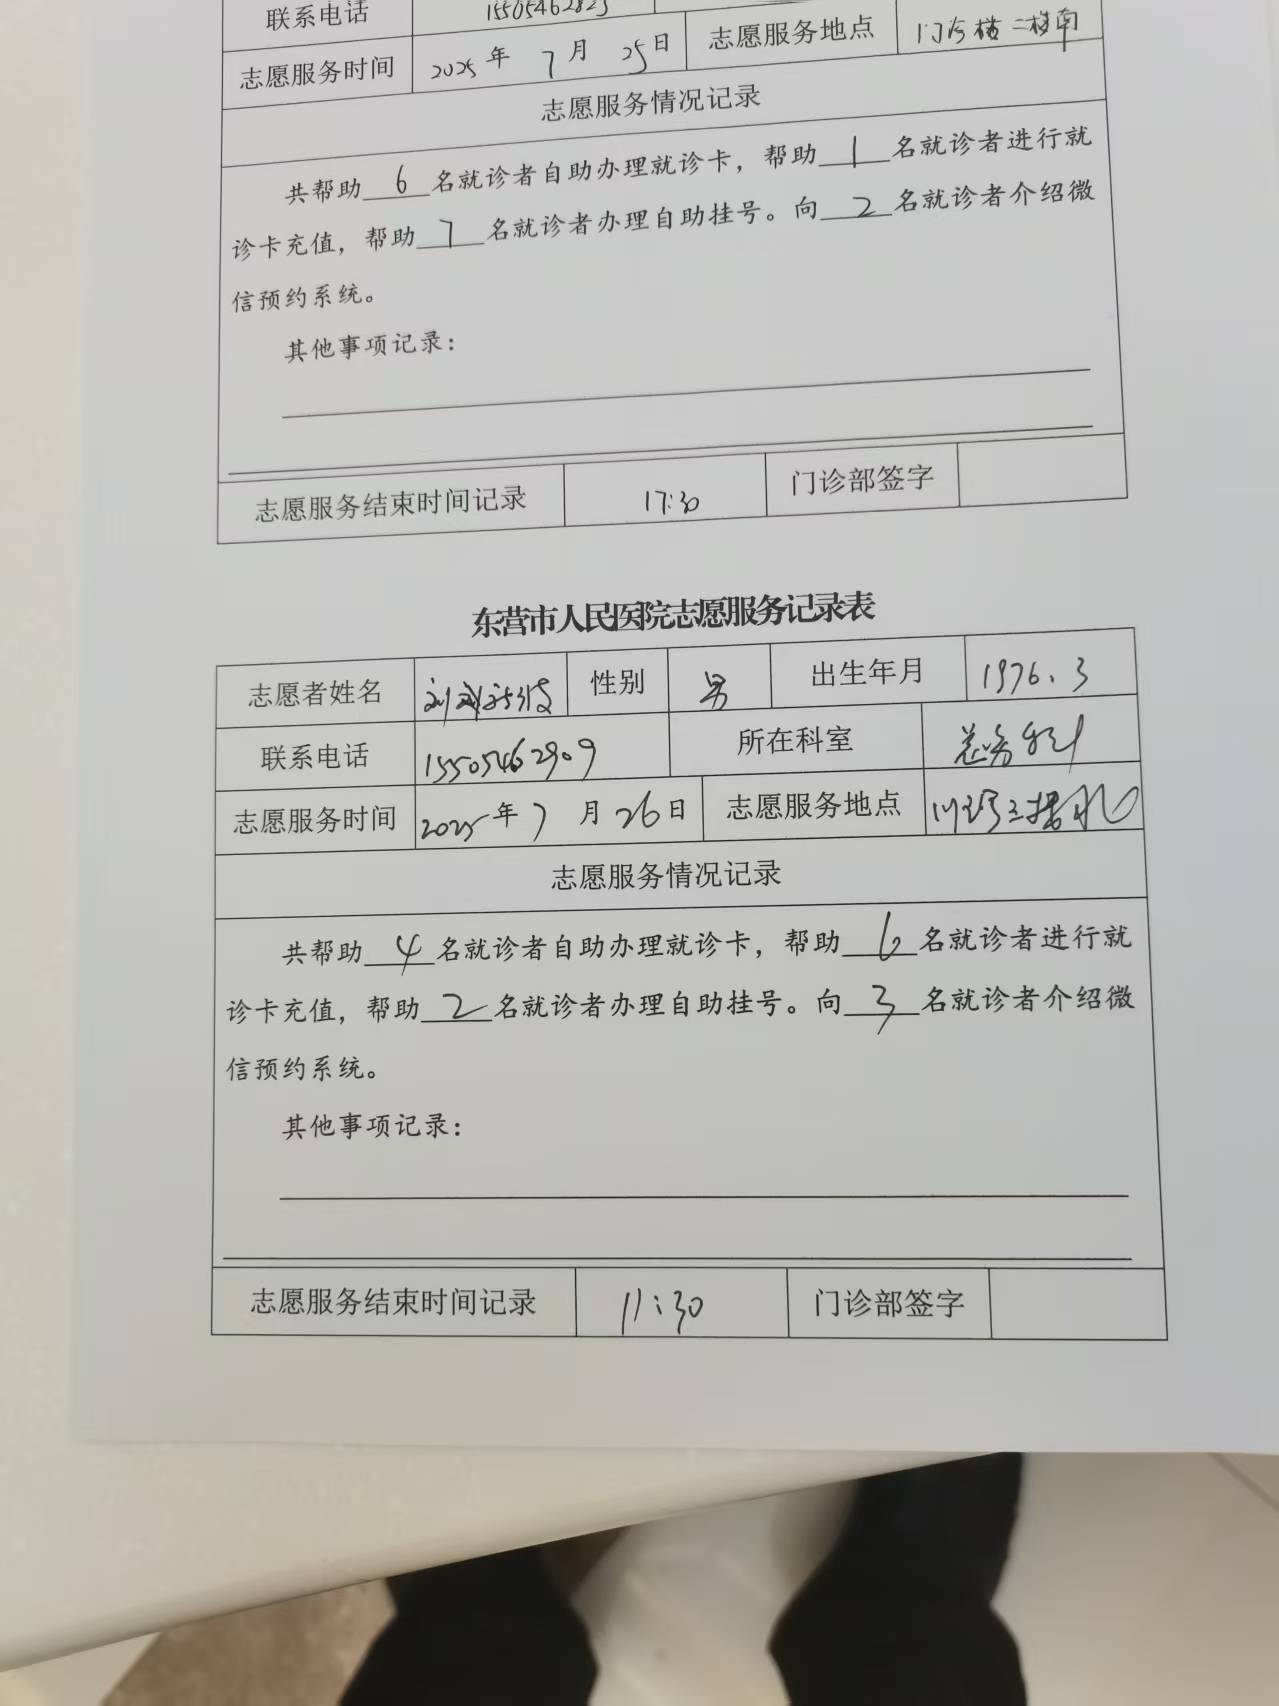 联系电话 15505462823
志愿服务时间 2025年 7月 25日 志愿服务地点 门诊楼二楼南
志愿服务情况记录
共帮助 6 名就诊者自助办理就诊卡，帮助 1 名就诊者进行就
诊卡充值，帮助 7 名就诊者办理自助挂号。向 2 名就诊者介绍微
信预约系统。
其他事项记录：
志愿服务结束时间记录 17:30 门诊部签字
东营市人民医院志愿服务记录表
志愿者姓名 性别 男 出生年月 1976.3
联系电话 15505462909 所在科室 总务科
志愿服务时间 2025年 7月 26日 志愿服务地点
志愿服务情况记录
共帮助 4 名就诊者自助办理就诊卡，帮助 6 名就诊者进行就
诊卡充值，帮助 2 名就诊者办理自助挂号。向 3 名就诊者介绍微
信预约系统。
其他事项记录：
志愿服务结束时间记录 11:30 门诊部签字